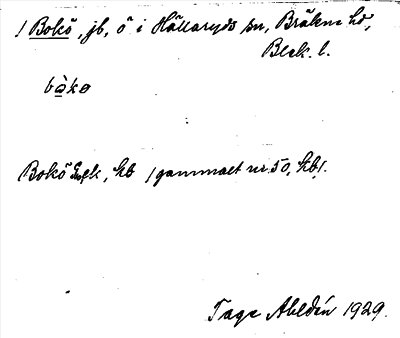 / Bokö, jb, ö i Hällaryds sn, Bräkne hd,
Blek. l.
bàkø
Bokö Ensk, Kb / gammalt nr 50, Kb/.
Tage Ahldén 1929.